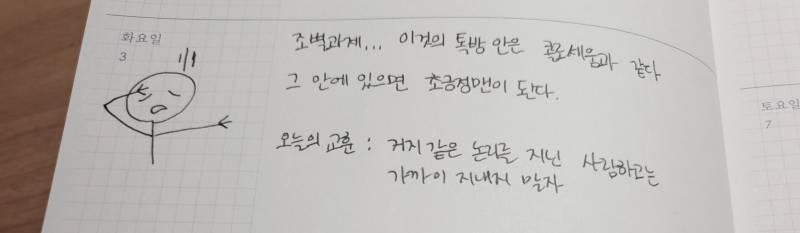 화요일
3
조별과제... 이것의 톡방 안은 콜로세움과 같다
그 안에 있으면 초긍정맨이 된다.
오늘의 교훈 : 거지 같은 논리를 지닌 사람하고는
가까이 지내지 말자
토요일
7